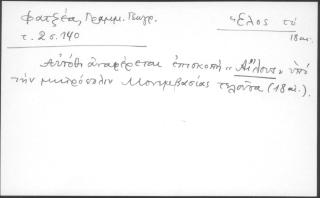 Φατζέα, Γραμμ. Γεωγρ.
τ. 2. σ. 140
Ἕλος τό
18 αι.
Αὐτόθι ἀναφέρεται ἐπισκοπὴ «Αἴλους» ὑπό
τὴν μητρόπολιν Μονεμβασίας τελοῦσα (18 αι.).